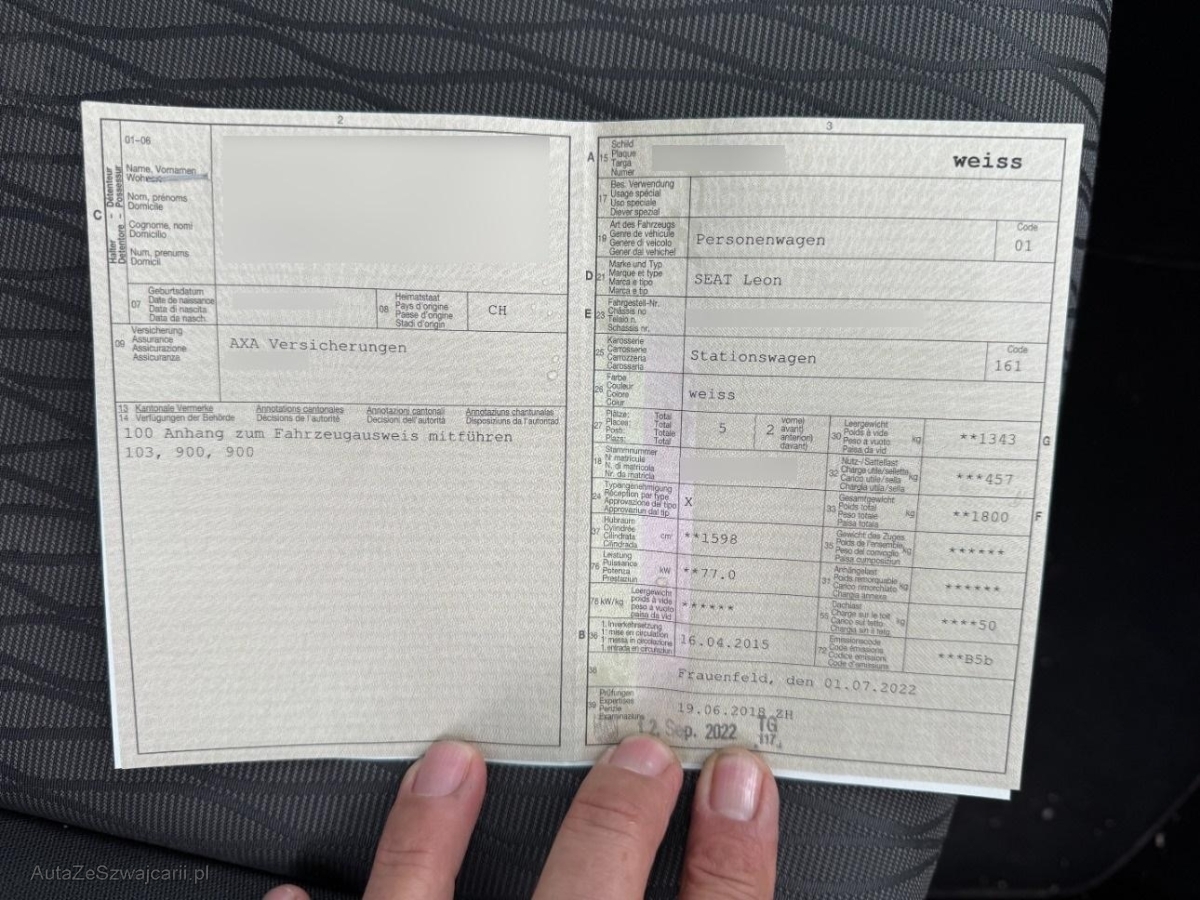 2
01-06
C
Halter - Détenteur
Detentore - Possessur
Name, Vornamen
Nom, prénoms
Domicile
Cognome, nomi
Domicilio
Num, prenums
Domicil
07
Geburtsdatum
Date de naissance
Data di nascita
Data da nasch.
08
Heimatstaat
Pays d'origine
Paese d'origine
Stadi d'origin
CH
09
Versicherung
Assurance
Assicurazione
Assicuranza
AXA Versicherungen
13 Kantonale Vermerke Annotations cantonales Annotazioni cantonali Annotaziuns chantunalas
14 Verfügungen der Behörde Décisions de l'autorité Decisioni dell'autorità Disposiziuns da l'autoritad
100 Anhang zum Fahrzeugausweis mitführen
103, 900, 900
3
A 15
Schild
Plaque
Targa
Numer
weiss
17
Bes. Verwendung
Usage spécial
Uso speciale
Diever spezial
19
Art des Fahrzeugs
Genre de véhicule
Genere di veicolo
Gener dal vehichel
Personenwagen
Code
01
D 21
Marke und Typ
Marque et type
Marca e tipo
Marca e tip
SEAT Leon
E 23
Fahrgestell-Nr.
Châssis no
Telaio n.
Schassis nr.
25
Karosserie
Carrosserie
Carrozzeria
Carossaria
Stationswagen
Code
161
26
Farbe
Couleur
Colore
Colur
weiss
27
Plätze: Total
Places: Total
Posti: Totale
Plazs: Total
5
2
vorne)
avant)
anteriori)
davant)
30
Leergewicht
Poids à vide
Peso a vuoto
Paisa da vid
kg
**1343
G
18
Stammnummer
N. matricule
N. di matricola
Nr. da matricla
32
Nutz-/Sattellast
Charge utile/sellette
Carico utile/sella
Chargia utila/sella
kg
***457
24
Typengenehmigung
Réception par type
Approvazione del tipo
Approvaziun dal tip
X
33
Gesamtgewicht
Poids total
Peso totale
Paisa totala
kg
**1800
F
37
Hubraum
Cylindrée
Cilindrata
Cilindrada
**1598
35
Gewicht des Zuges
Poids de l'ensemble
Peso del convoglio
Paisa cumposiziun
kg
******
76
Leistung
Puissance
Potenza
Prestaziun
kW
**77.0
31
Anhängelast
Poids remorquable
Carico rimorchiato
Chargia annexa
kg
******
78 kW/kg
Leergewicht
poids à vide
peso a vuoto
paisa da vid
******
55
Dachlast
Charge sur le toit
Carico sul tetto
Chargia sin il tetg
kg
****50
B 36
1. Inverkehrsetzung
1. mise en circulation
1. messa in circolazione
1. entrada en circulaziun
16.04.2015
72
Emissionscode
Code émissions
Codice emissioni
Code d'emissiuns
***B5b
38
Frauenfeld, den 01.07.2022
39
Prüfungen
Expertises
Perizie
Examinaziuns
19.06.2018 ZH
12. Sep. 2022 TG
117
AutaZeSzwajcarii.pl